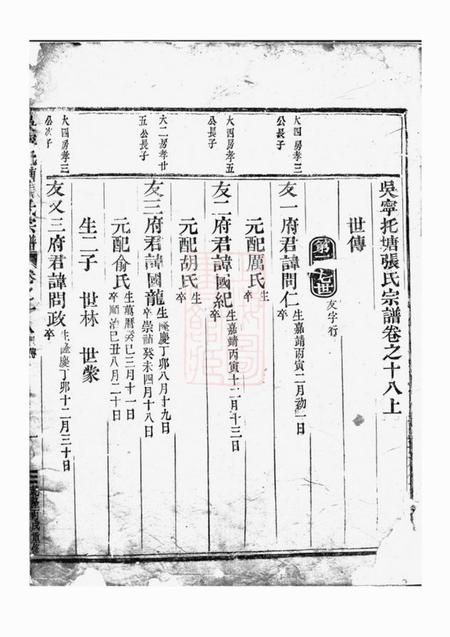 吳寧托塘張氏宗譜卷之十八上
世傳
第十世
友字行
大四房孝三公長子
友一府君諱問仁 生嘉靖丙寅二月初一日 卒
元配厲氏 生 卒
大四房孝五公長子
友二府君諱國紀 生嘉靖丙寅十二月十三日 卒
元配胡氏 生 卒
大二房孝廿五公長子
友三府君諱國龍 生隆慶丁卯八月十九日 卒崇禎癸未四月十八日
元配俞氏 生萬曆癸巳三月十一日 卒順治己丑八月二十日
生二子 世林 世蒙
大四房孝三公次子
友又三府君諱問政 生隆慶丁卯十二月三十日 卒